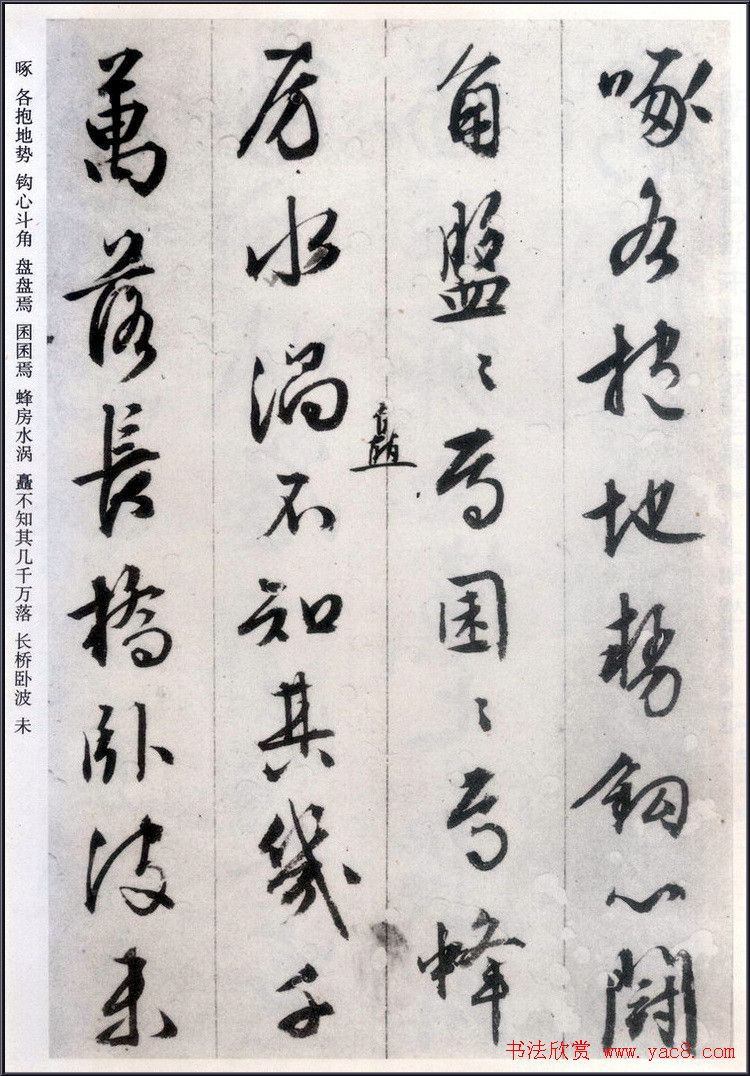 啄各抱地勢鈎心鬪
角盤〻焉囷〻焉蜂
房水渦不知其幾千
矗
萬落長橋臥波未
啄 各抱地势 钩心斗角 盘盘焉 囷囷焉 蜂房水涡 矗不知其几千万落 长桥卧波 未
书法欣赏 www.yac8.com